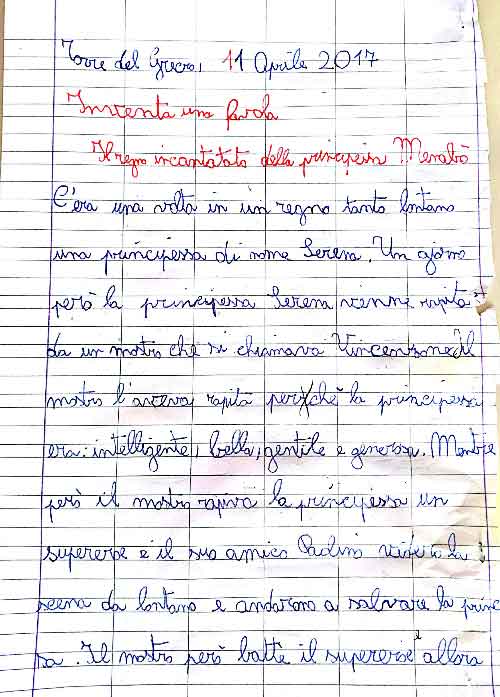 Torre del Greco, 11 Aprile 2017
Inventa una favola
Il regno incantatato della principessa Menabò
C'era una volta in un regno tanto lontano
una principessa di nome Serena. Un giorno
però la principessa Serena venne rapita
da un mostro che si chiamava Vincenzone. Il
mostro l'aveva rapita perchè la principessa
era: intelligente, bella, gentile e generosa. Mentre
però il mostro rapiva la principessa un
supereroe e il suo amico Paolino videro la
scena da lontano e andarono a salvare la princ
sa. Il mostro però battè il supereroe allora